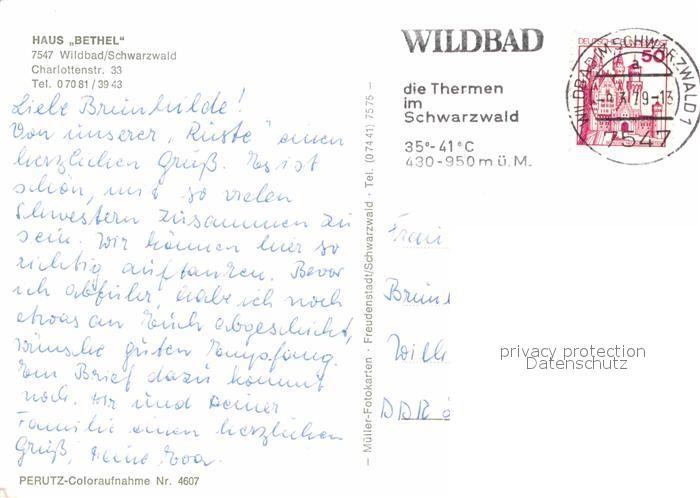 HAUS „BETHEL"
7547 Wildbad/Schwarzwald
Charlottenstr. 33
Tel. 0 70 81 / 39 43
Liebe Brünhilde!
Von unserer „Rüste" einen
herzlichen Gruß. Es ist
schön, mit so vielen
Schwestern zusammen zu
sein. Wir können hier so
richtig auftanken. Bevor
ich abfuhr, habe ich noch
etwas an Euch abgeschickt,
wünsche guten Empfang.
Ein Brief dazu kommt
noch. Dir und Deiner
Familie einen herzlichen
Gruß, Deine Eva.
PERUTZ-Coloraufnahme Nr. 4607
– Müller-Fotokarten · Freudenstadt/Schwarzwald · Tel. (0 74 41) 75 75 –
WILDBAD
die Thermen
im
Schwarzwald
35°-41°C
430-950 m ü. M.
DEUTSCHE BUNDESPOST
50
WILDBAD IM SCHWARZWALD 1
a
79-13
7547
Brün
Will
DDR
privacy protection
Datenschutz